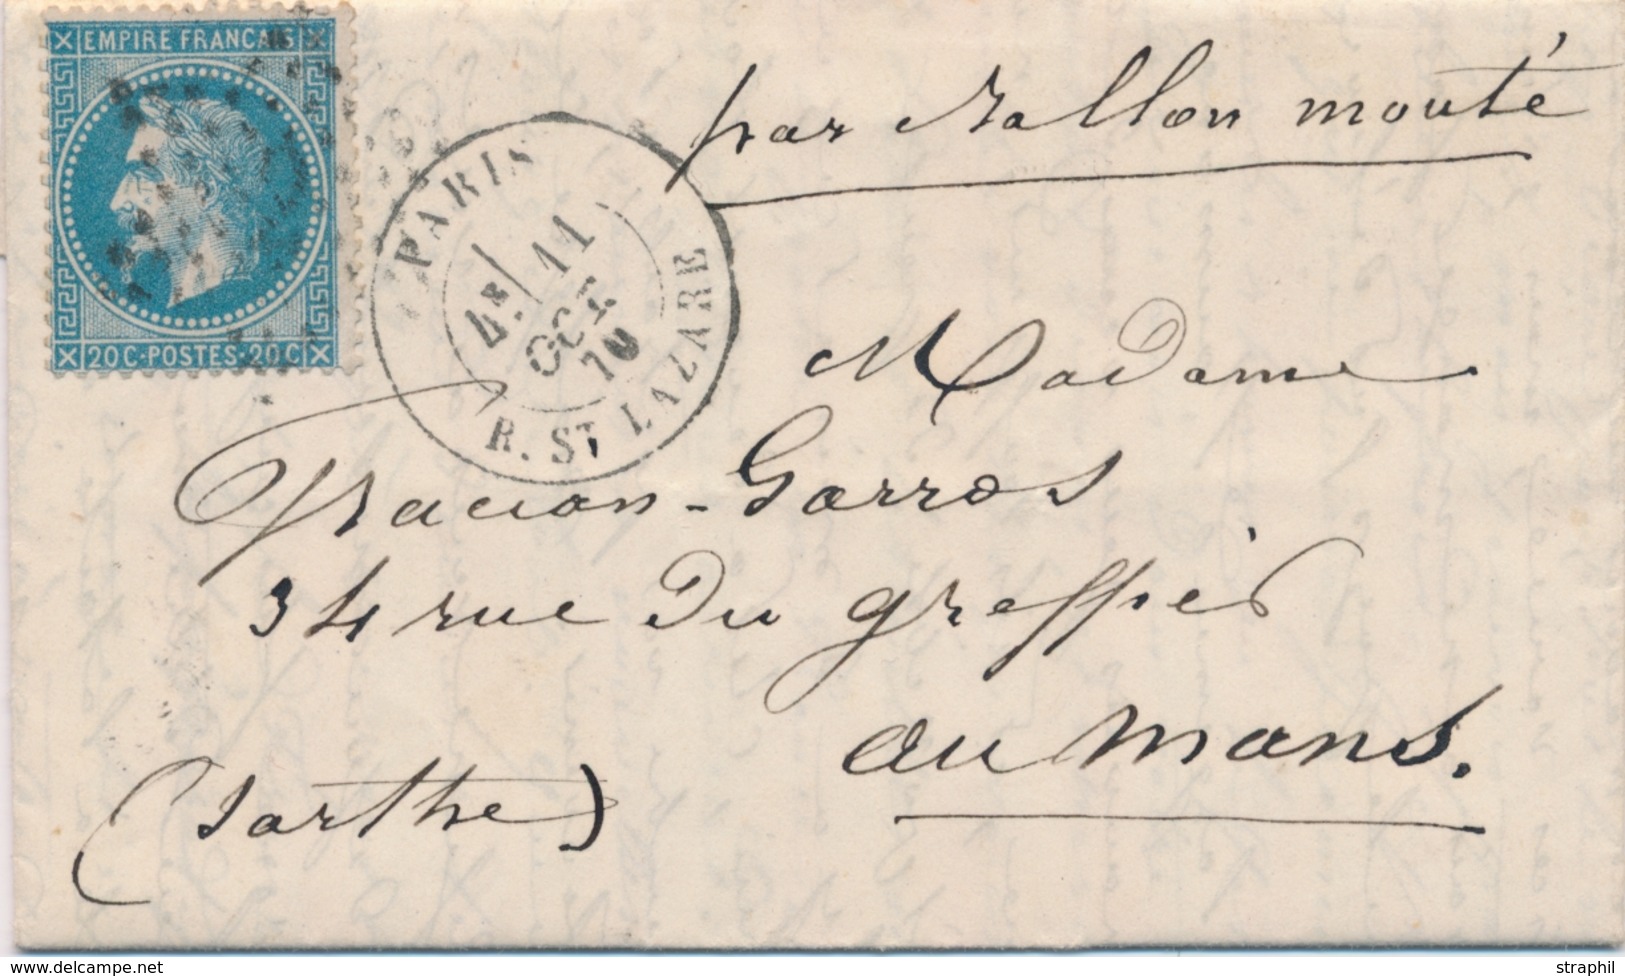 EMPIRE FRANCAIS
20 C·POSTES·20 C
PARIS
4E 11
OCT.
70
R. ST LAZARE
par Ballon monté
Madame
Gracian-Garros
34 rue du greffier
au Mans.
(Sarthe)
straphil